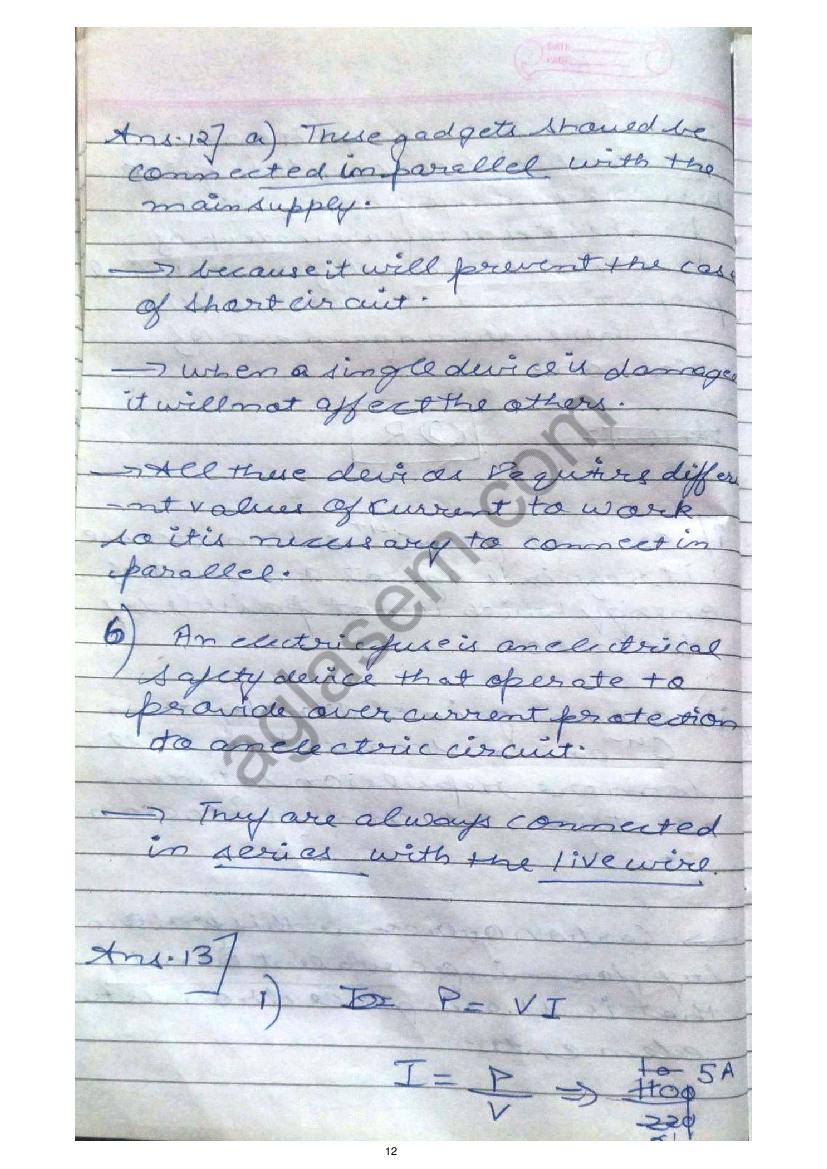 Ans.12] a) These gadgets should be
connected in parallel with the
main supply.
→ because it will prevent the cas
of short circuit.
→ when a single device is damage
it will not affect the others.
→ All these devices requires differ
-nt values of current to work
so it is necessary to connect in
parallel.
b) An electric fuse is an electrical
safety device that operate to
provide over current protection
to an electric circuit.
→ They are always connected
in series with the live wire.
Ans.13]
1) P = VI
I = P/V ⇒ 1100/220 5A
aglasem.com
12